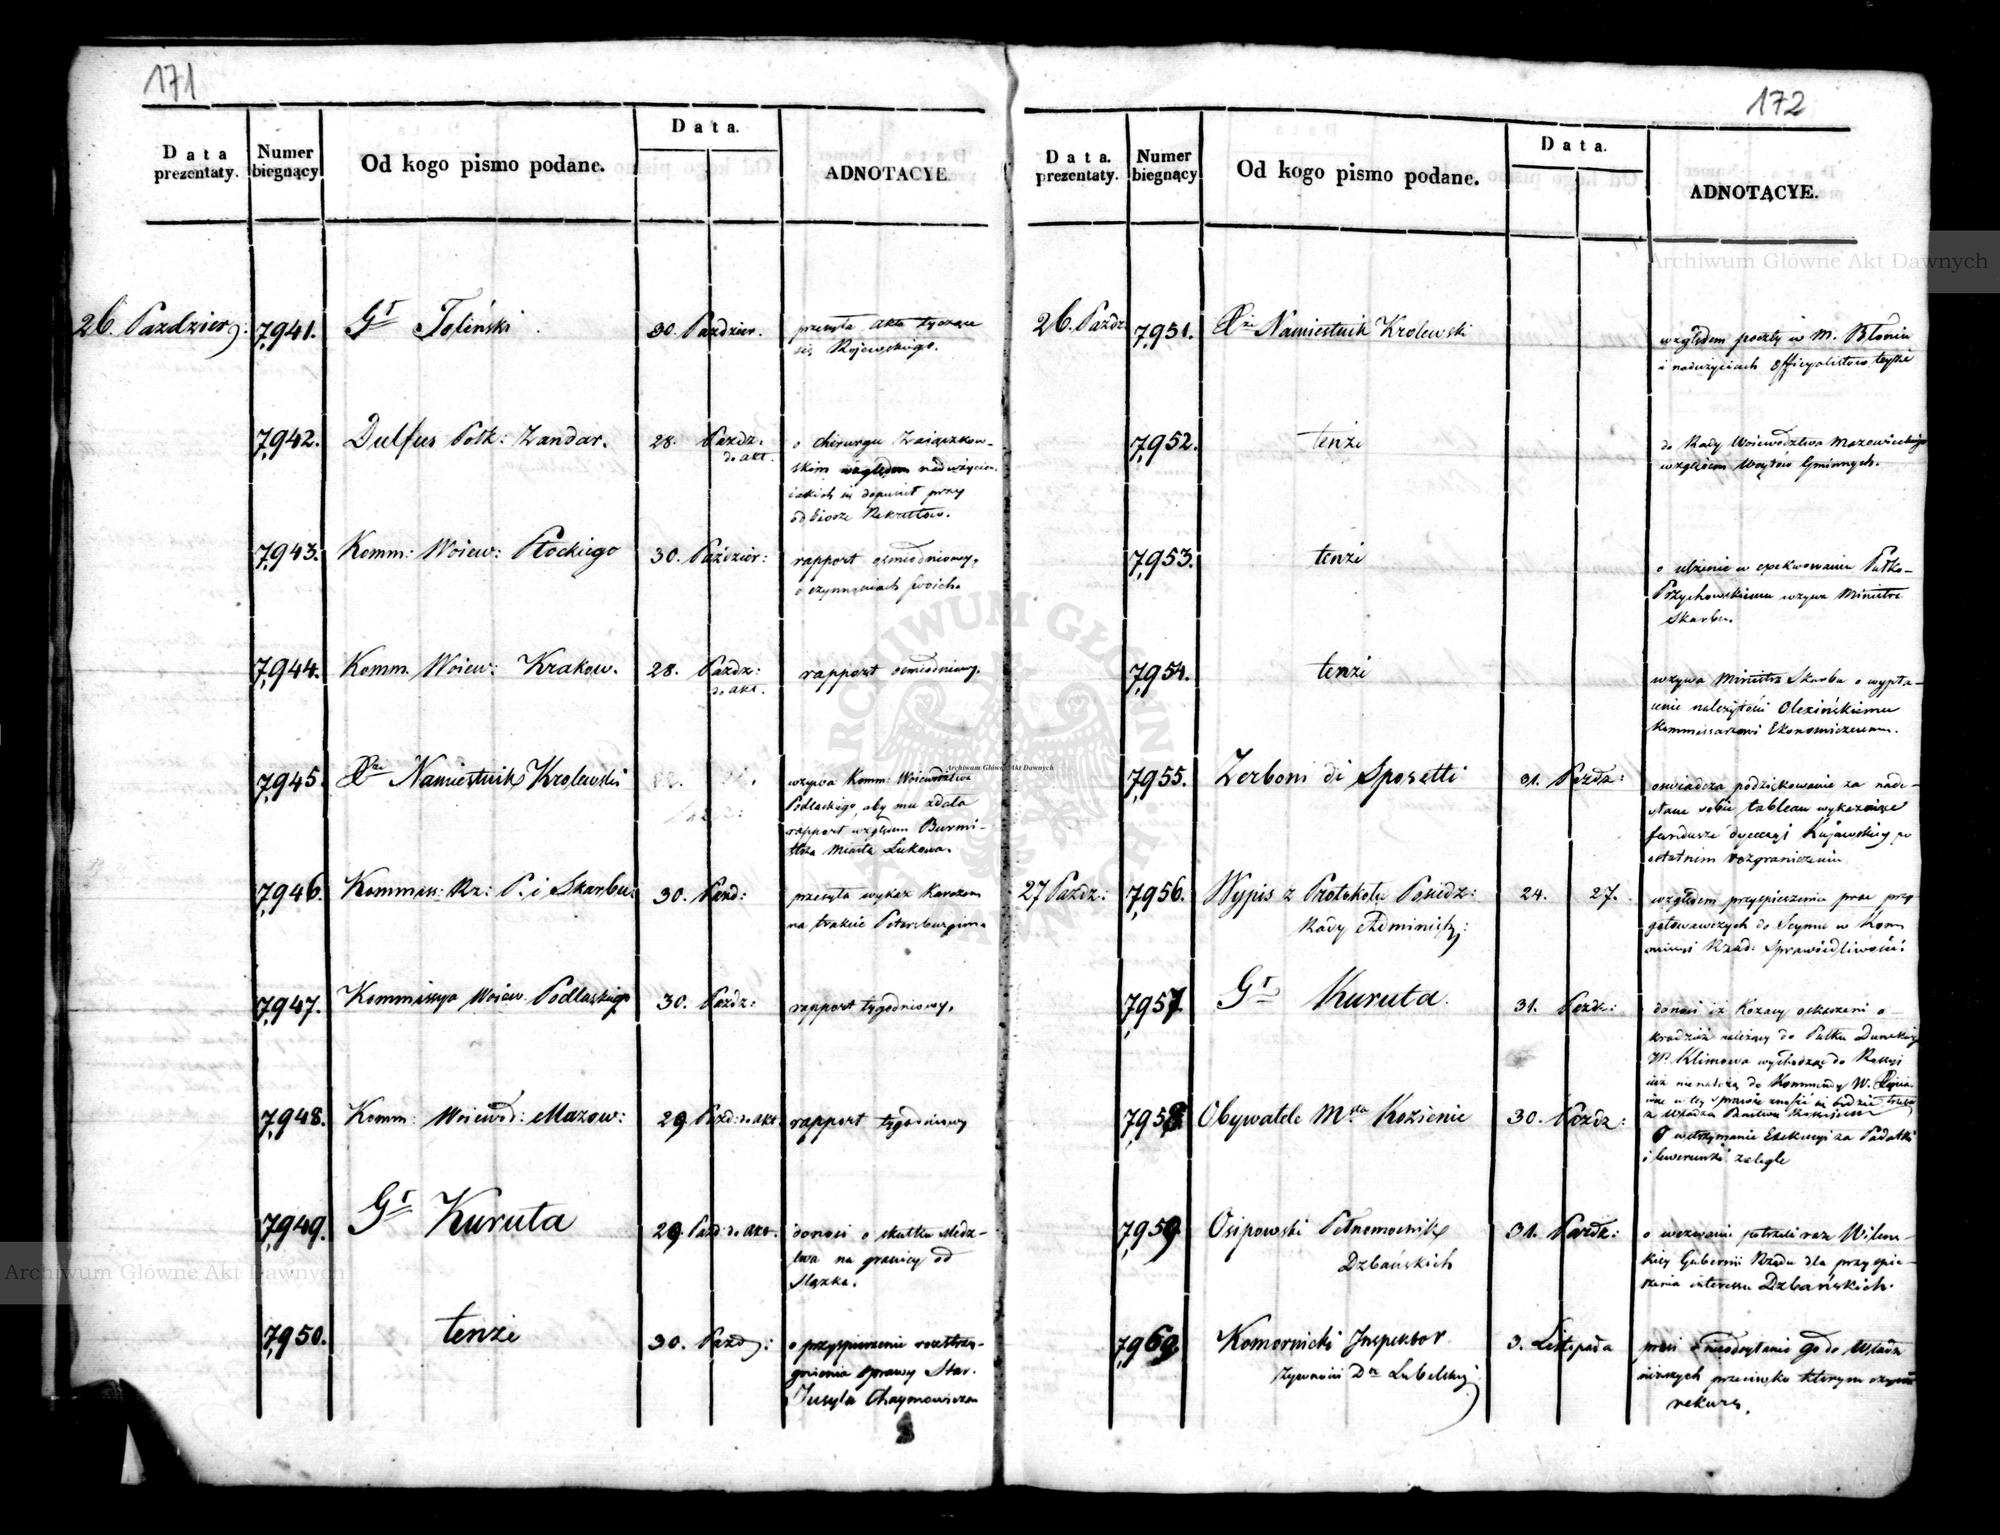 171
Data
prezentaty.
Numer
biegnący
Od kogo pismo podane.
Data.
ADNOTACYE.
26. Pazdzier:
7,941.
Gr Toliński
30. Pazdzier.
przesyła akta tyczące
się Rojewskiego.
7,942.
Dulfus Połk: Żandar.
28. Pazdz:
do akt.
o chirurgu
skim względem nadużyciów
iakich się dopuścił przy
odbiorze Rekrutów.
7,943.
Komm: Woiew: Płockiego
30. Paździer:
rapport osmiodniowy,
o czynnościach swoich.
7,944.
Komm. Woiew: Krakow.
28. Pazdz:
do akt.
rapport osmiodniowy.
7,945.
Xże Namiestnik Krolewski
wzywa Komm: Woiewodztwa
Podlaskiego, aby mu zdała
rapport względem Burmi-
strza Miasta Łukowa.
7,946.
Kommiss: Rz: P. i Skarbu:
30. Pazd:
przesyła wykaz karczem
na trakcie Petersburgim.
7,947.
Kommissya Woiew. Podlaskiego
30. Pazdz:
rapport tygodniowy.
7,948.
Komm: Woiewod: Mazow:
29 Pazd: do akt.
rapport tygodniowy
7,949.
Gr Kuruta
29. Pazd: do akt.
donosi o skutku śledz-
twa na granicy od
Sląska.
7,950.
tenże
30. Pazd:
o przyspieszenie rozstrzy-
gnienia sprawy Star.
Jusyla Chaymowicza
172
Data.
prezentaty.
Numer
biegnący
Od kogo pismo podane.
Data.
ADNOTACYE.
26. Pazdz:
7,951.
Xże Namiestnik Krolewski
względem poczty w M. Błoniu
i nadużyciach Officyalistów teyże
7,952.
tenże
do Rady Woiewodztwa Mazowieckiego
względem Woytów Gminnych.
7,953.
tenże
o ulżenie w exekwowaniu Pułko-
Przychowskiemu wzywa Ministra
Skarbu.
7,954.
tenże
wzywa Ministra Skarbu o wypła-
cenie należytości Olezińskiemu
Kommissarzowi Ekonomicznemu.
7,955.
Zerboni di Sposetti
31. Pazdz:
oswiadcza podziękowanie za nade-
słane sobie tableau wykazuiące
fundusze dyecezyi Kujawskiey po
ostatniem rozgraniczeniu
27 Pazdz:
7,956.
Wypis z Protokołu Posiedz:
Rady Administ:
24. 27.
względem przyspieszenia prac przy
gotowawczych do Seymu w Kom
missyi Rząd: Sprawiedliwości
7,957
Gr Kuruta.
31. Pazdz:
donosi iż Kozacy oskarżeni o
kradzież należący do Pułku Dunskiey
W. Klimowa wychodząc do Rossyi
iuż nie należą do Kommendy W. Xięcia
z Władzą Państwa Rossyiskiem
7,958
Obywatele Msta Kozienic
30. Pazdz:
O wstrzymanie Exekucyi za Podatki
i zaległe
7,959
Osipowski Pełnomocnik
Dzbańskich
31. Pazdz:
o wezwanie potrzeci raz Wilens-
kiey Gubernii Rządu dla przyspie-
szenia interessu Dzbańskich.
7,960.
Komornicki Inspektor
Żywności Dra Lubelskiey
3. Listopada
prosi o nieodsyłanie go do Władz
niższych przeciwko którym czyni
rekurs.
Archiwum Główne Akt Dawnych
Archiwum Główne Akt Dawnych
Archiwum Główne Akt Dawnych
ARCHIWUM GŁÓWNE